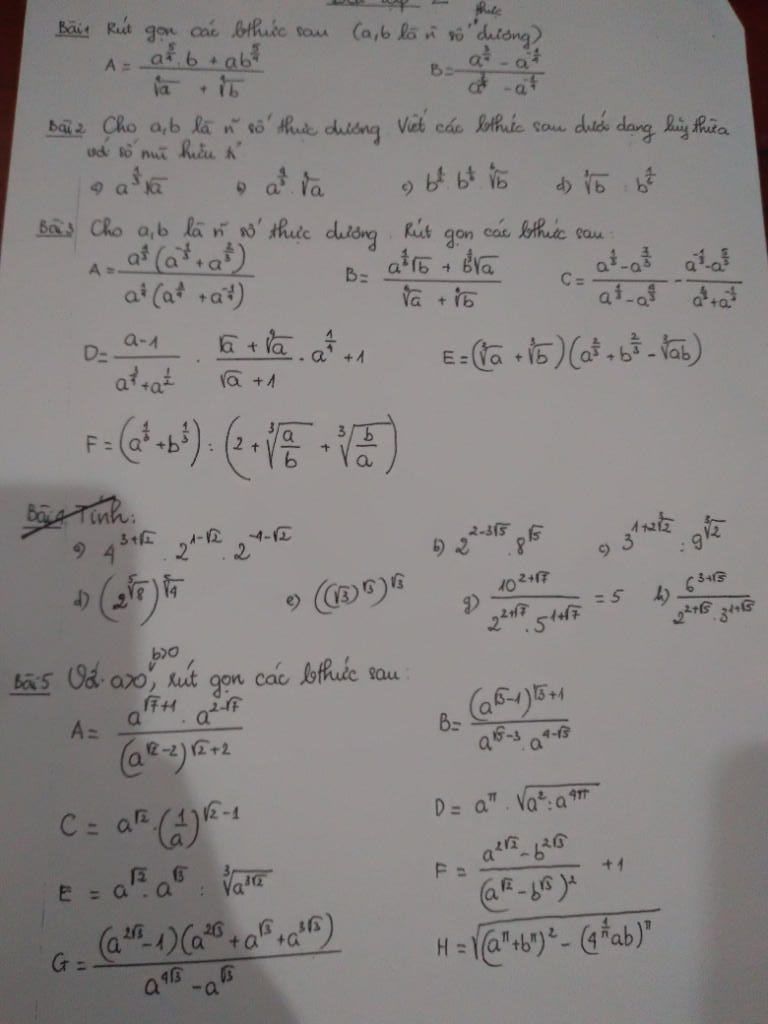 thức
Bài 1 Rút gọn các bthức sau (a,b là n~ số dương)
A = (a^{5/4}.b + ab^{5/4}) / (⁴√a + ⁴√b)
B =
Bài 2 Cho a,b là n~ số thực dương Viết các bthức sau dưới dạng lũy thừa
với số mũ hữu tỉ
a) a^{1/3}.√a b) c) b^{1/2}.b^{1/3}.⁶√b d) ³√b : b^{1/6}
Bài 3 Cho a,b là n~ số thực dương. Rút gọn các bthức sau:
A = B = (a^{1/3}√b + b^{1/3}√a) / (⁶√a + ⁶√b) C =
D = (a-1) / (a^{3/4}+a^{1/2}) . (√a + ⁴√a) / (√a + 1) . a^{1/4} + 1 E = (³√a + ³√b)(a^{2/3} + b^{2/3} - ³√ab)
F = (a^{1/3} + b^{1/3}) : (2 + ³√(a/b) + ³√(b/a))
Bài 4 Tính:
a) 4^{3+√2} . 2^{1-√2} . 2^{-4-√2} b) 2^{2-3√5} . 8^{√5} c) 3^{1+2³√2} : 9^{³√2}
d) (2^{⁵√8})^{⁵√4} e) ((√3)^{√3})^{√3} g) 10^{2+√7} / (2^{2+√7} . 5^{1+√7}) = 5 h) 6^{3+√5} / (2^{2+√5} . 3^{1+√5})
b>0
Bài 5 Với a>0, rút gọn các bthức sau:
A = (a^{√7+1} . a^{2-√7}) / (a^{√2-2})^{√2+2}
B = (a^{√3-1})^{√3+1} / (a^{√5-3} . a^{4-√5})
C = a^{√2} . (1/a)^{√2-1}
D = a^π . √(a² : a^{4π})
E = a^{√2} . a^{√3} : ³√(a^{3√2})
F = (a^{2√2} - b^{2√3}) / (a^{√2} - b^{√3})² + 1
G = (a^{2√3} - 1)(a^{2√3} + a^{√3} + a^{3√3}) / (a^{4√3} - a^{√3})
H = √((a^π + b^π)² - (4^{1/π}ab)^π)